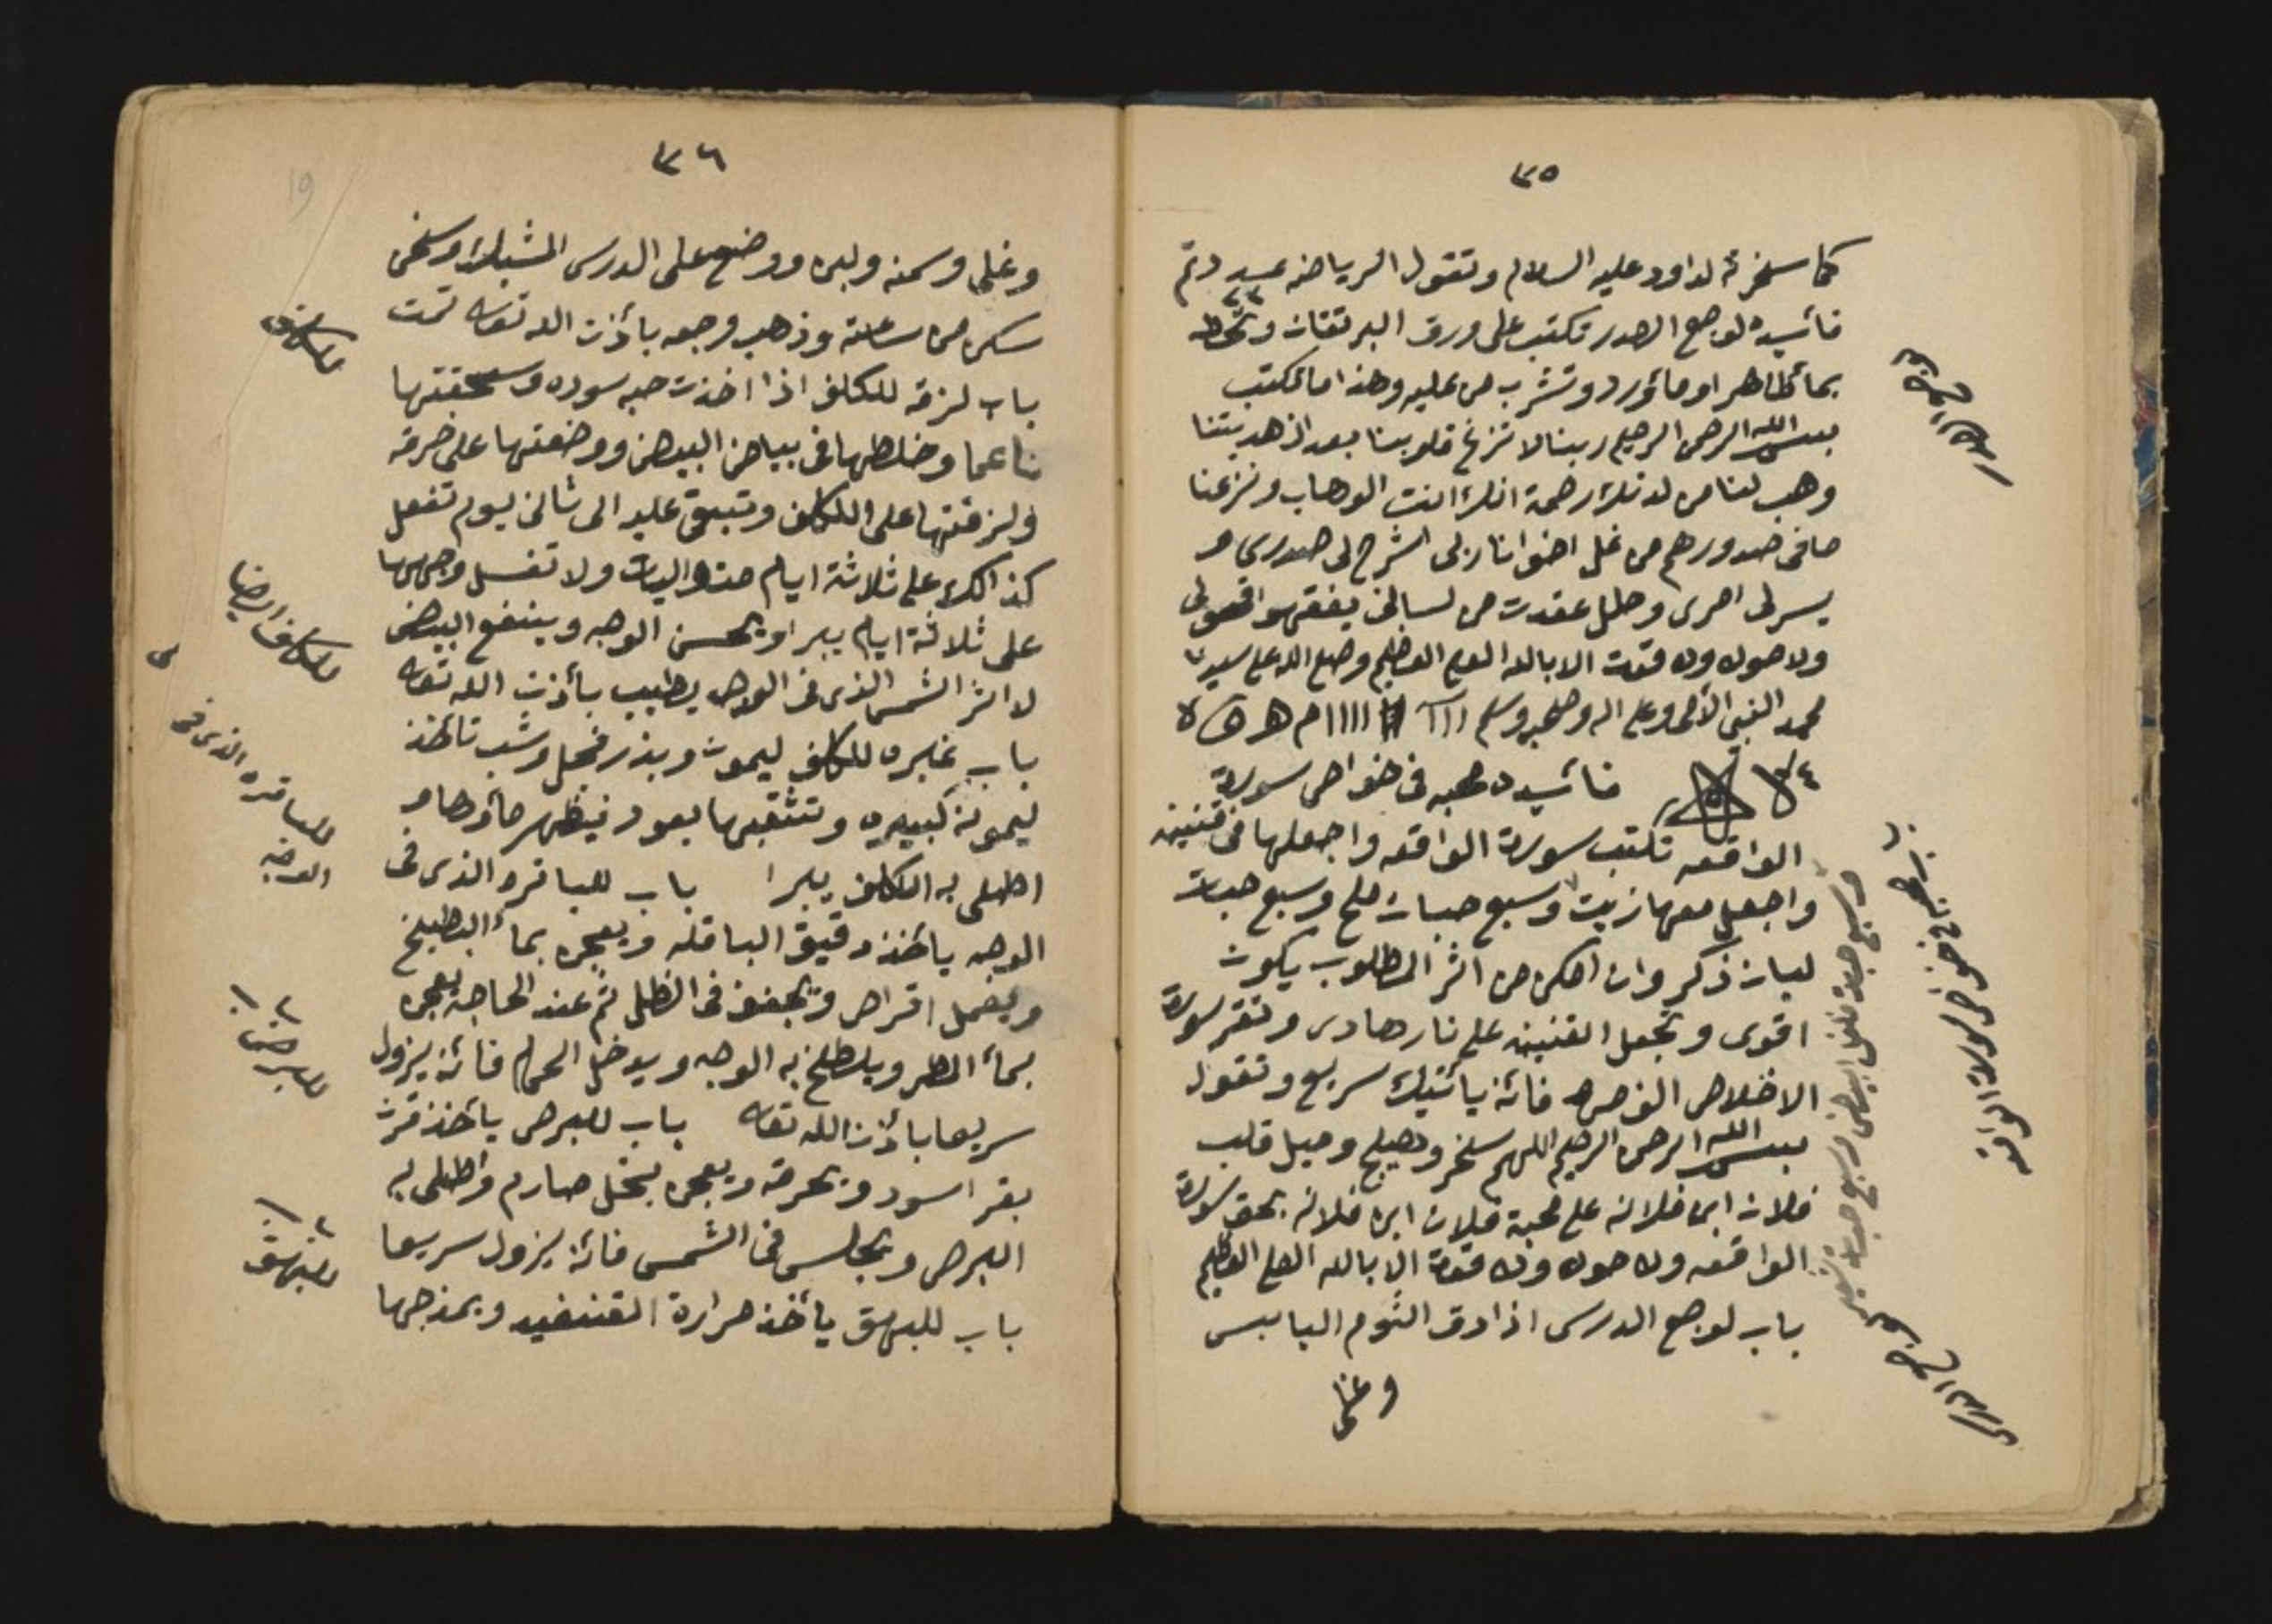 ٣٥
كما سخرته لداود عليه السلام وتقول الرياضه عـ وتم
فائيده لوجع الصدر تكتب على ورق البرتقان وتحطه
بمائطاهر او مائورد وتشرب من عليه وهذا ما تكتب
بسم الله الرحمن الرحيم ربنا لا تزغ قلوبنا بعد اذ هديتنا
وهب لنا من لدنك رحمة انك انت الوهاب ونزعنا
ما فى صدورهم من غل اخوانا ربى اشرح لى صدرى و
يسر لى امرى وحلل عقدت من لسانى يفقهوا قولى
ولا حول ولا قوت الا بالله العلى العظيم وصلى الله على سيدنا
محمد النبى الأمى وعلى اله وصحبه وسلم ااا # اااا م ه
فائيده محبه فى خواص سورة
الواقعه تكتب سورة الواقعه واجعلها فى قنينه
واجعل معها زيت وسبع حبات ملح وسبع حبات
لبان ذكر وان امكن من اثر المطلوب يكون
اقوى وتجعل القنينه على نار هادى وتقر سورة
الاخلاص الف مره فائنه يائتيك سريع وتقول
بسم الله الرحمن الرحيم اللهم سخر وهيج وميل قلب
فلان ابن فلانه على محبة فلان ابن فلانه بحق سورة
الواقعه ولا حول ولا قوة الا بالله العلى العظيم
باب لوجع الدرس اذا دق الثوم اليابس
وغلى
لوجع الصدر
محبه فى خواص سورة الواقعه
وسبع حبات فلفل ابيض وسبع حبات
لوجع الدرس
٣٦
وغلى وسمنه ولبن ووضع على الدرس المشبلك وسخن
سكن من ساعته وذهب وجعه بأذن الله تعاله تمت
باب لزقه للكلف اذا اخذت حبه سوده وسحقتها
ناعما وخلطها فى بياض البيض ووضعتها على خرقه
ولزقتها على الكلف وتبقى عليه الى ثانى يوم تفعل
كذالك على ثلاثة ايام متواليات ولا تغسل وجهها
على ثلاثة ايام يبرا ويحسن الوجه وينفع البيض
لا اثر الشمس الذى فى الوجه يطيب بأذن الله تعاله
باب غيره للكلف ليمون وبذر فجل وشب تائخذ
ليمونه كبيره وتثقبها بعود فيظهر مائوها و
اطلى به الكلف يبرا باب للباثره الذى فى
الوجه يائخذ دقيق الباقله ويعجن بماء البطيخ
ويعمل اقراص ويجفف فى الظل ثم عند الحاجه يعجن
بماء المطر ويلطخ به الوجه ويدخل الحمام فائنه يزول
سريعا بأذن الله تعاله باب للبرص يائخذ قرن
بقر اسود ويحرقه ويعجن بخل صارم واطلى به
البرص وتجلس فى الشمس فائنه يزول سريعا
باب للبهق يائخذ مرارة القنفيد ويمذجها
للكلف
للكلف ايضا
للباثره الذى فى
الوجه
باب للبرص
باب للبهق
19